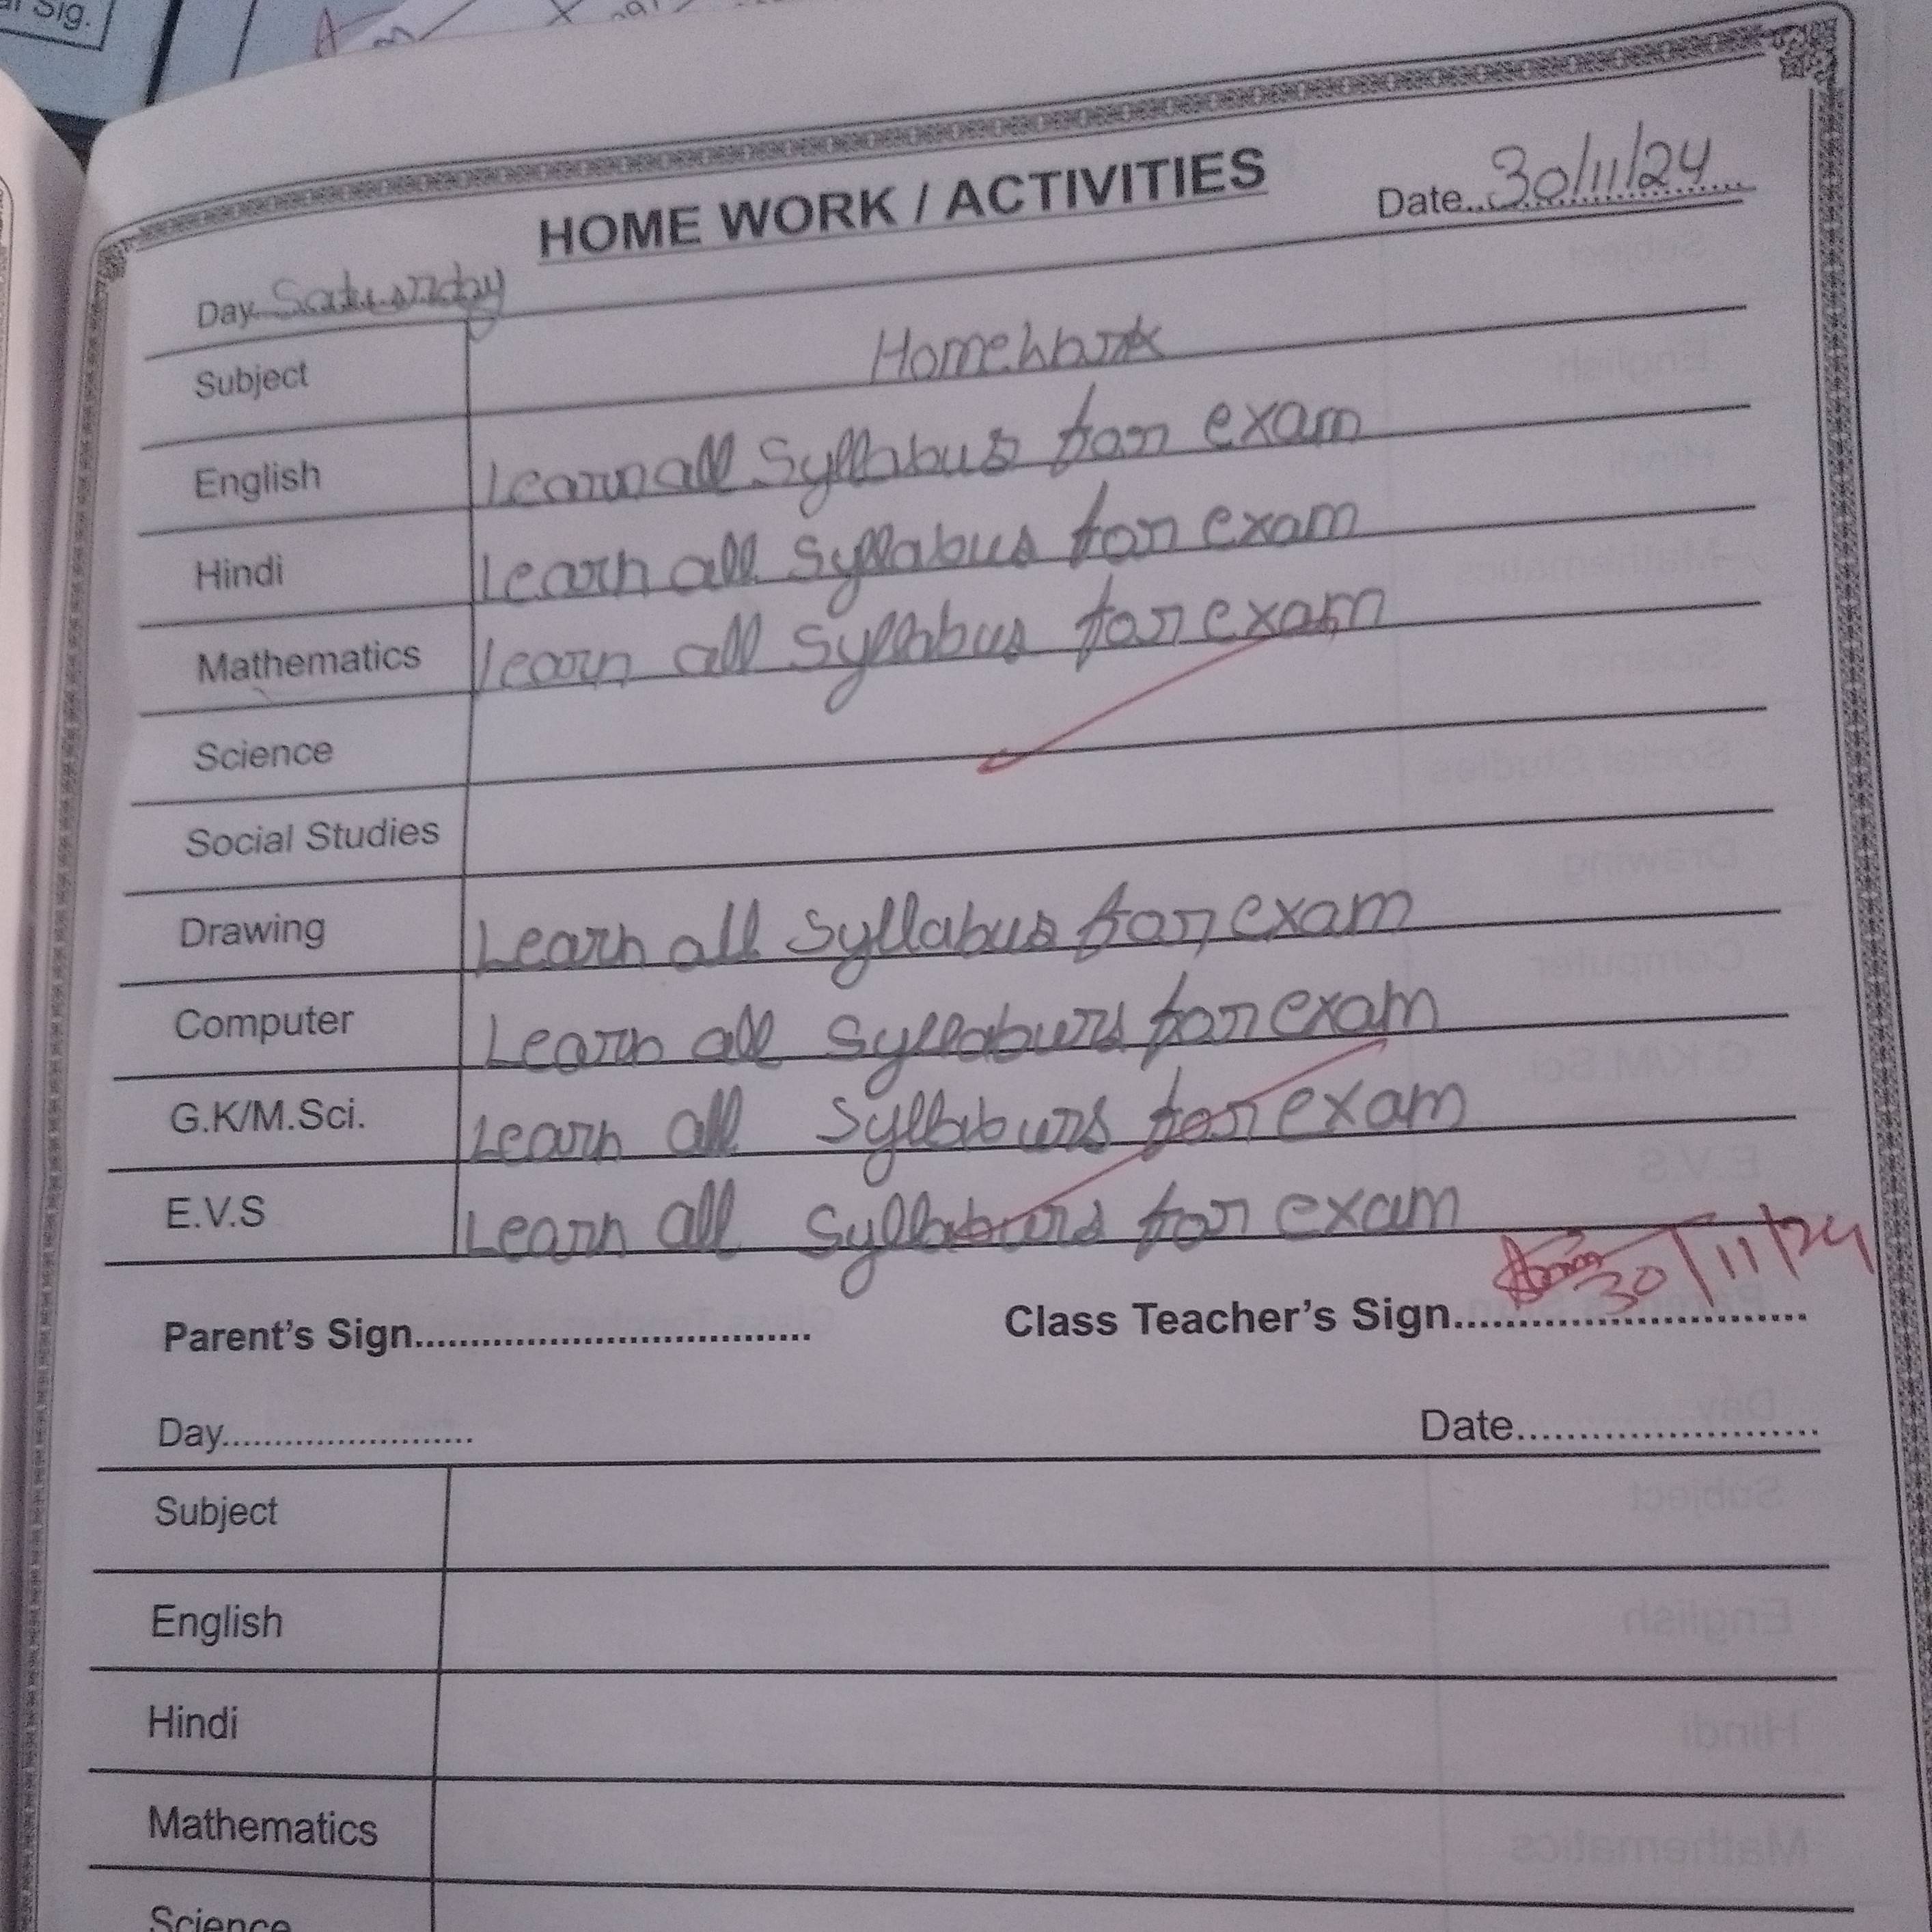 Sig.
HOME WORK / ACTIVITIES
Date..30/11/24
Day Saturday
Subject Homework
English Learn all Syllabus for exam
Hindi Learn all Syllabus for exam
Mathematics Learn all Syllabus for exam
Science
Social Studies
Drawing Learn all Syllabus for exam
Computer Learn all Syllaburs for exam
G.K/M.Sci. Learn all Syllaburs for exam
E.V.S Learn all Syllaburs for exam
30/11/24
Parent's Sign.................................... Class Teacher's Sign..............................
Day........................ Date........................
Subject
English
Hindi
Mathematics
Science